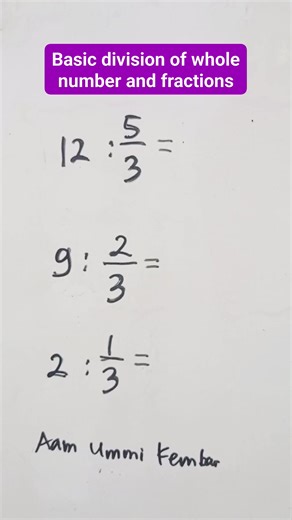 Basic division of whole
number and fractions
12 : 5/3 =
9 : 2/3 =
2 : 1/3 =
Aam Ummi Kembar